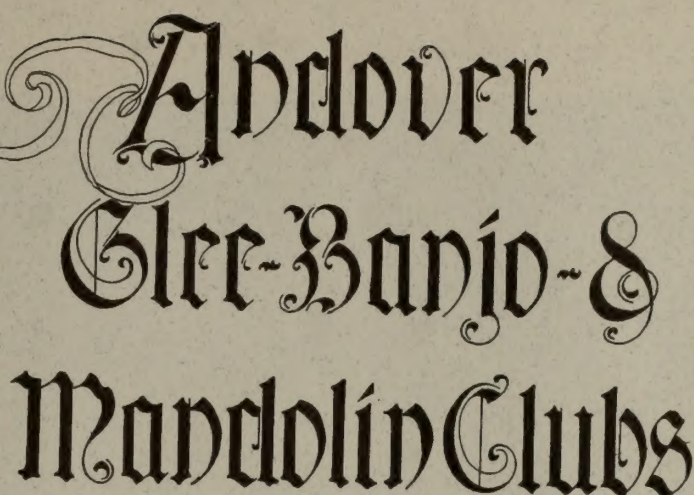 Andover
Glee-Banjo-&
Mandolin Clubs